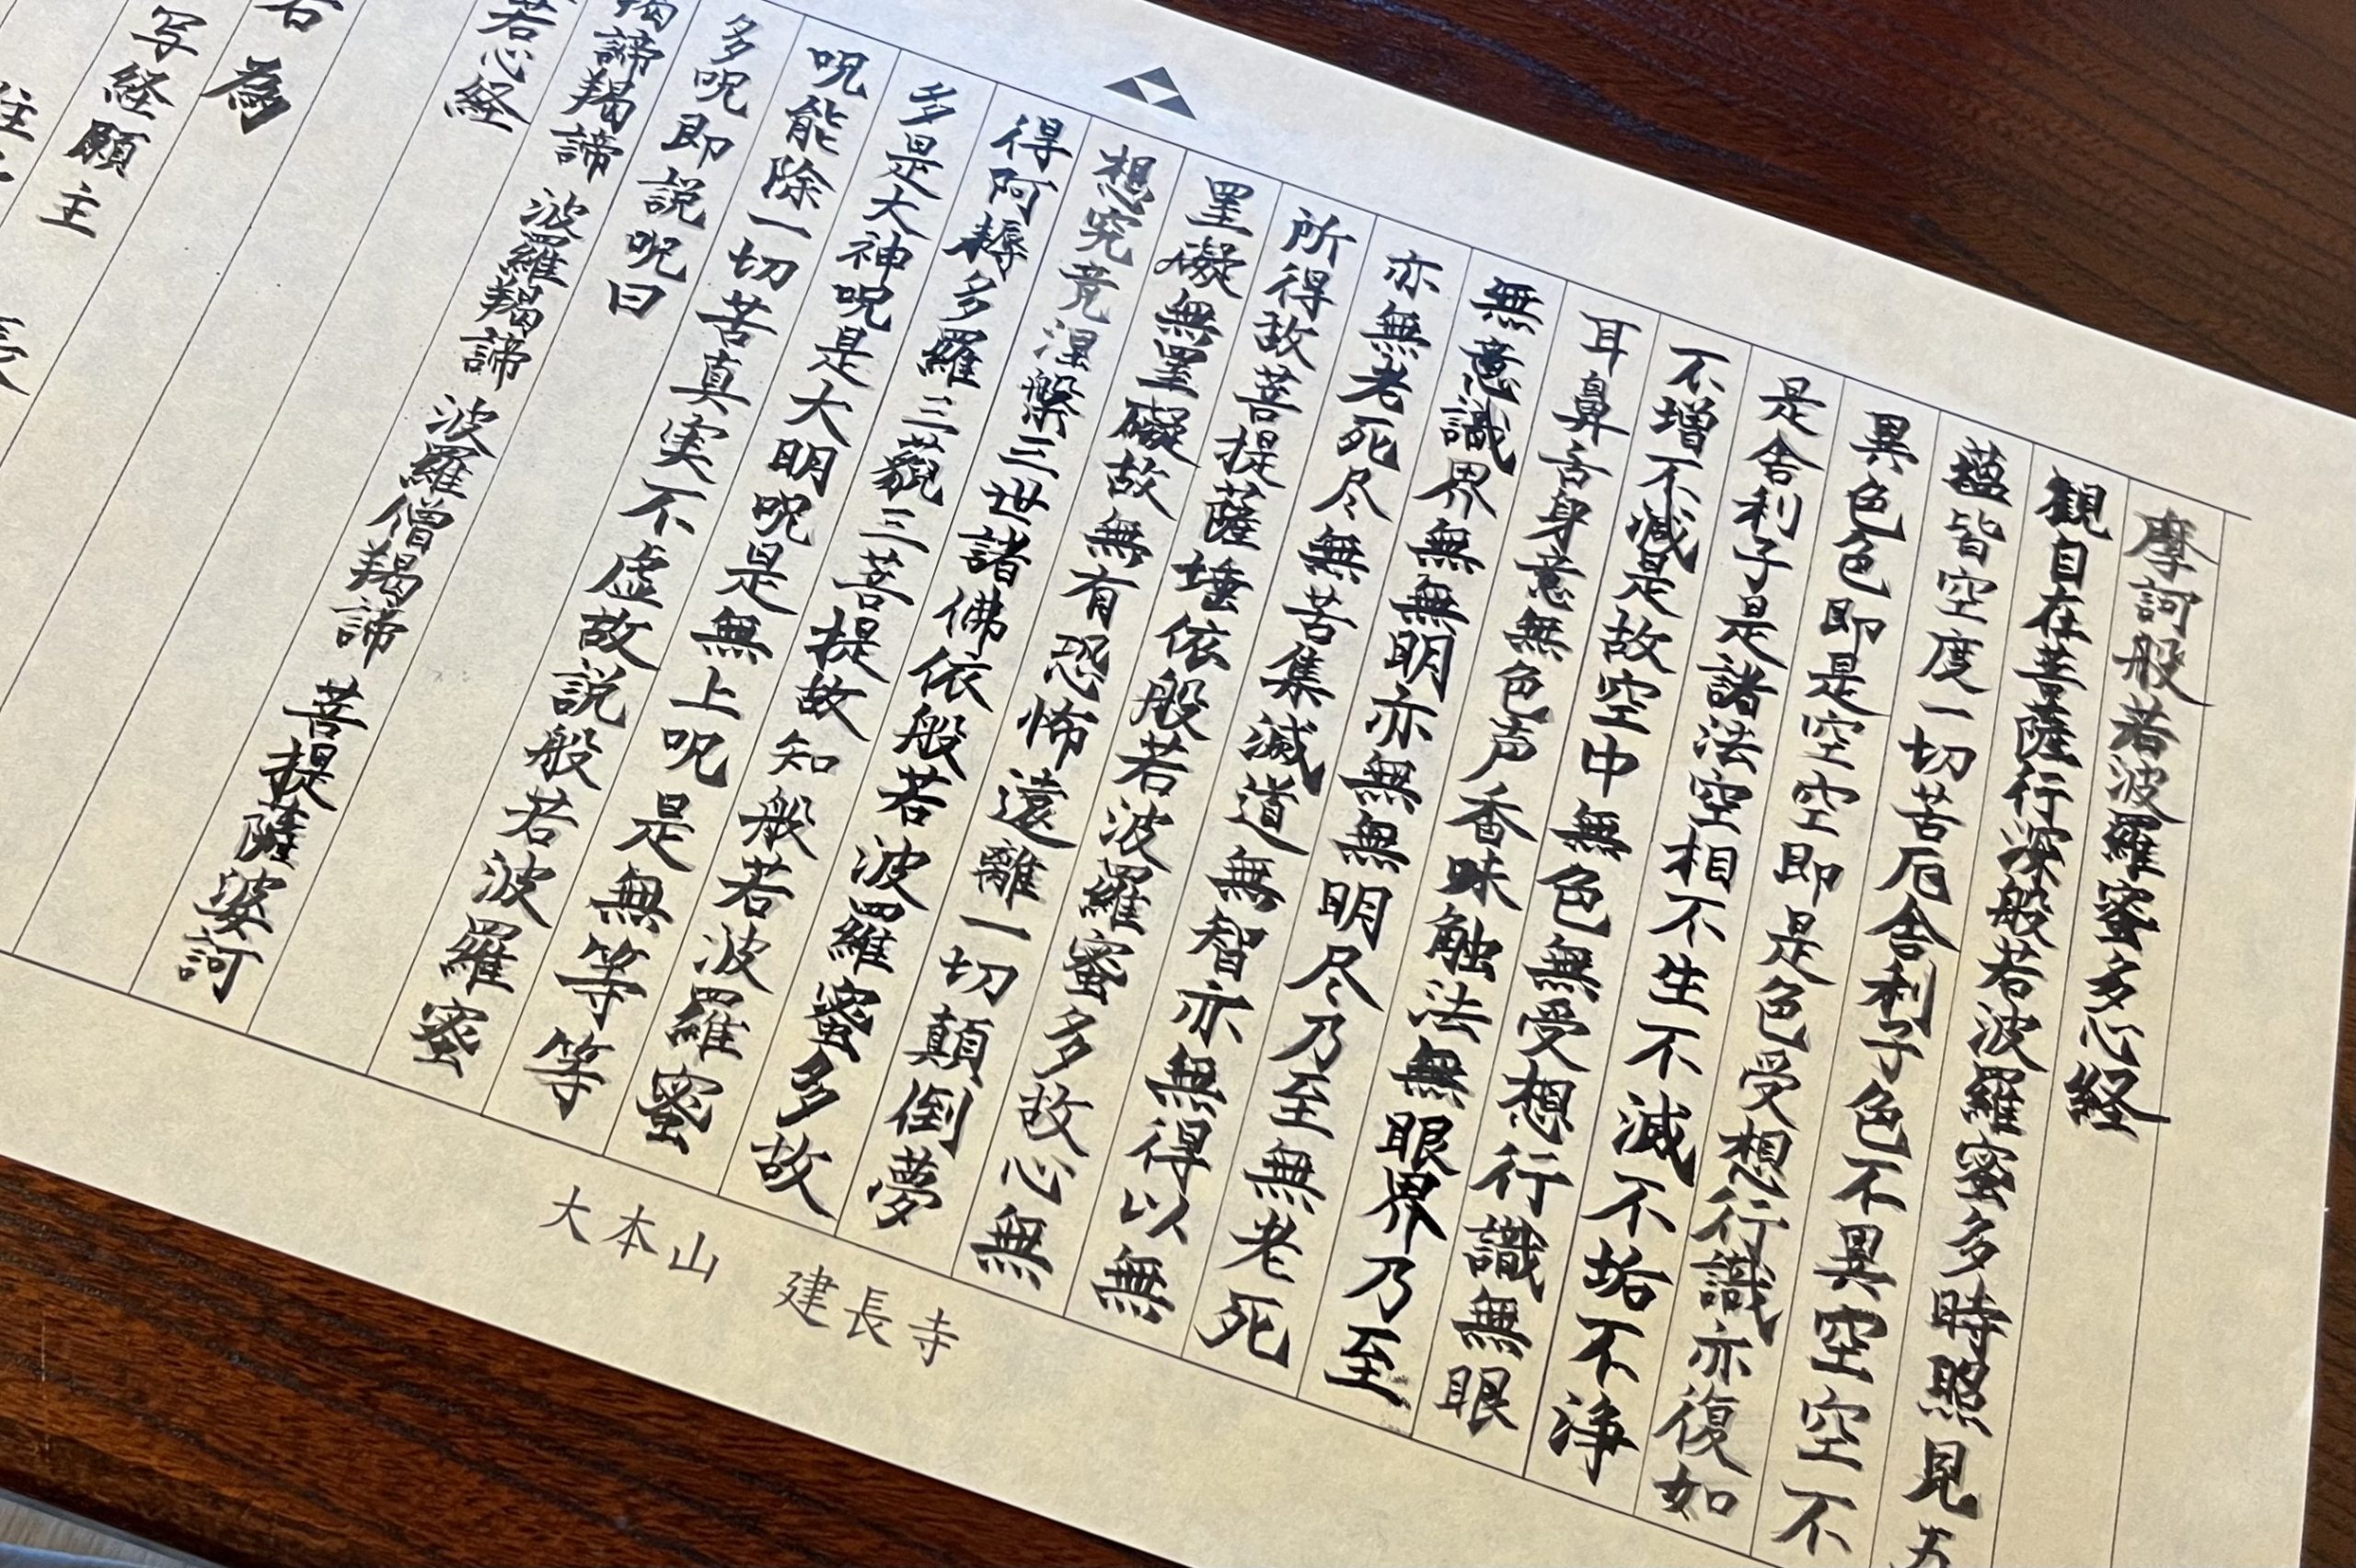 摩訶般若波羅蜜多心経
観自在菩薩行深般若波羅蜜多時照見五
蘊皆空度一切苦厄舎利子色不異空空不
異色色即是空空即是色受想行識亦復如
是舎利子是諸法空相不生不滅不垢不浄
不増不減是故空中無色無受想行識無眼
耳鼻舌身意無色声香味触法無眼界乃至
無意識界無無明亦無無明尽乃至無老死
亦無老死尽無苦集滅道無智亦無得以無
所得故菩提薩埵依般若波羅蜜多故心無
罣礙無罣礙故無有恐怖遠離一切顛倒夢
想究竟涅槃三世諸佛依般若波羅蜜多故
得阿耨多羅三藐三菩提故知般若波羅蜜
多是大神呪是大明呪是無上呪是無等等
呪能除一切苦真実不虚故説般若波羅蜜
多呪即説呪曰
羯諦羯諦 波羅羯諦 波羅僧羯諦 菩提薩婆訶
若心経
右 為
写経願主
大本山 建長寺